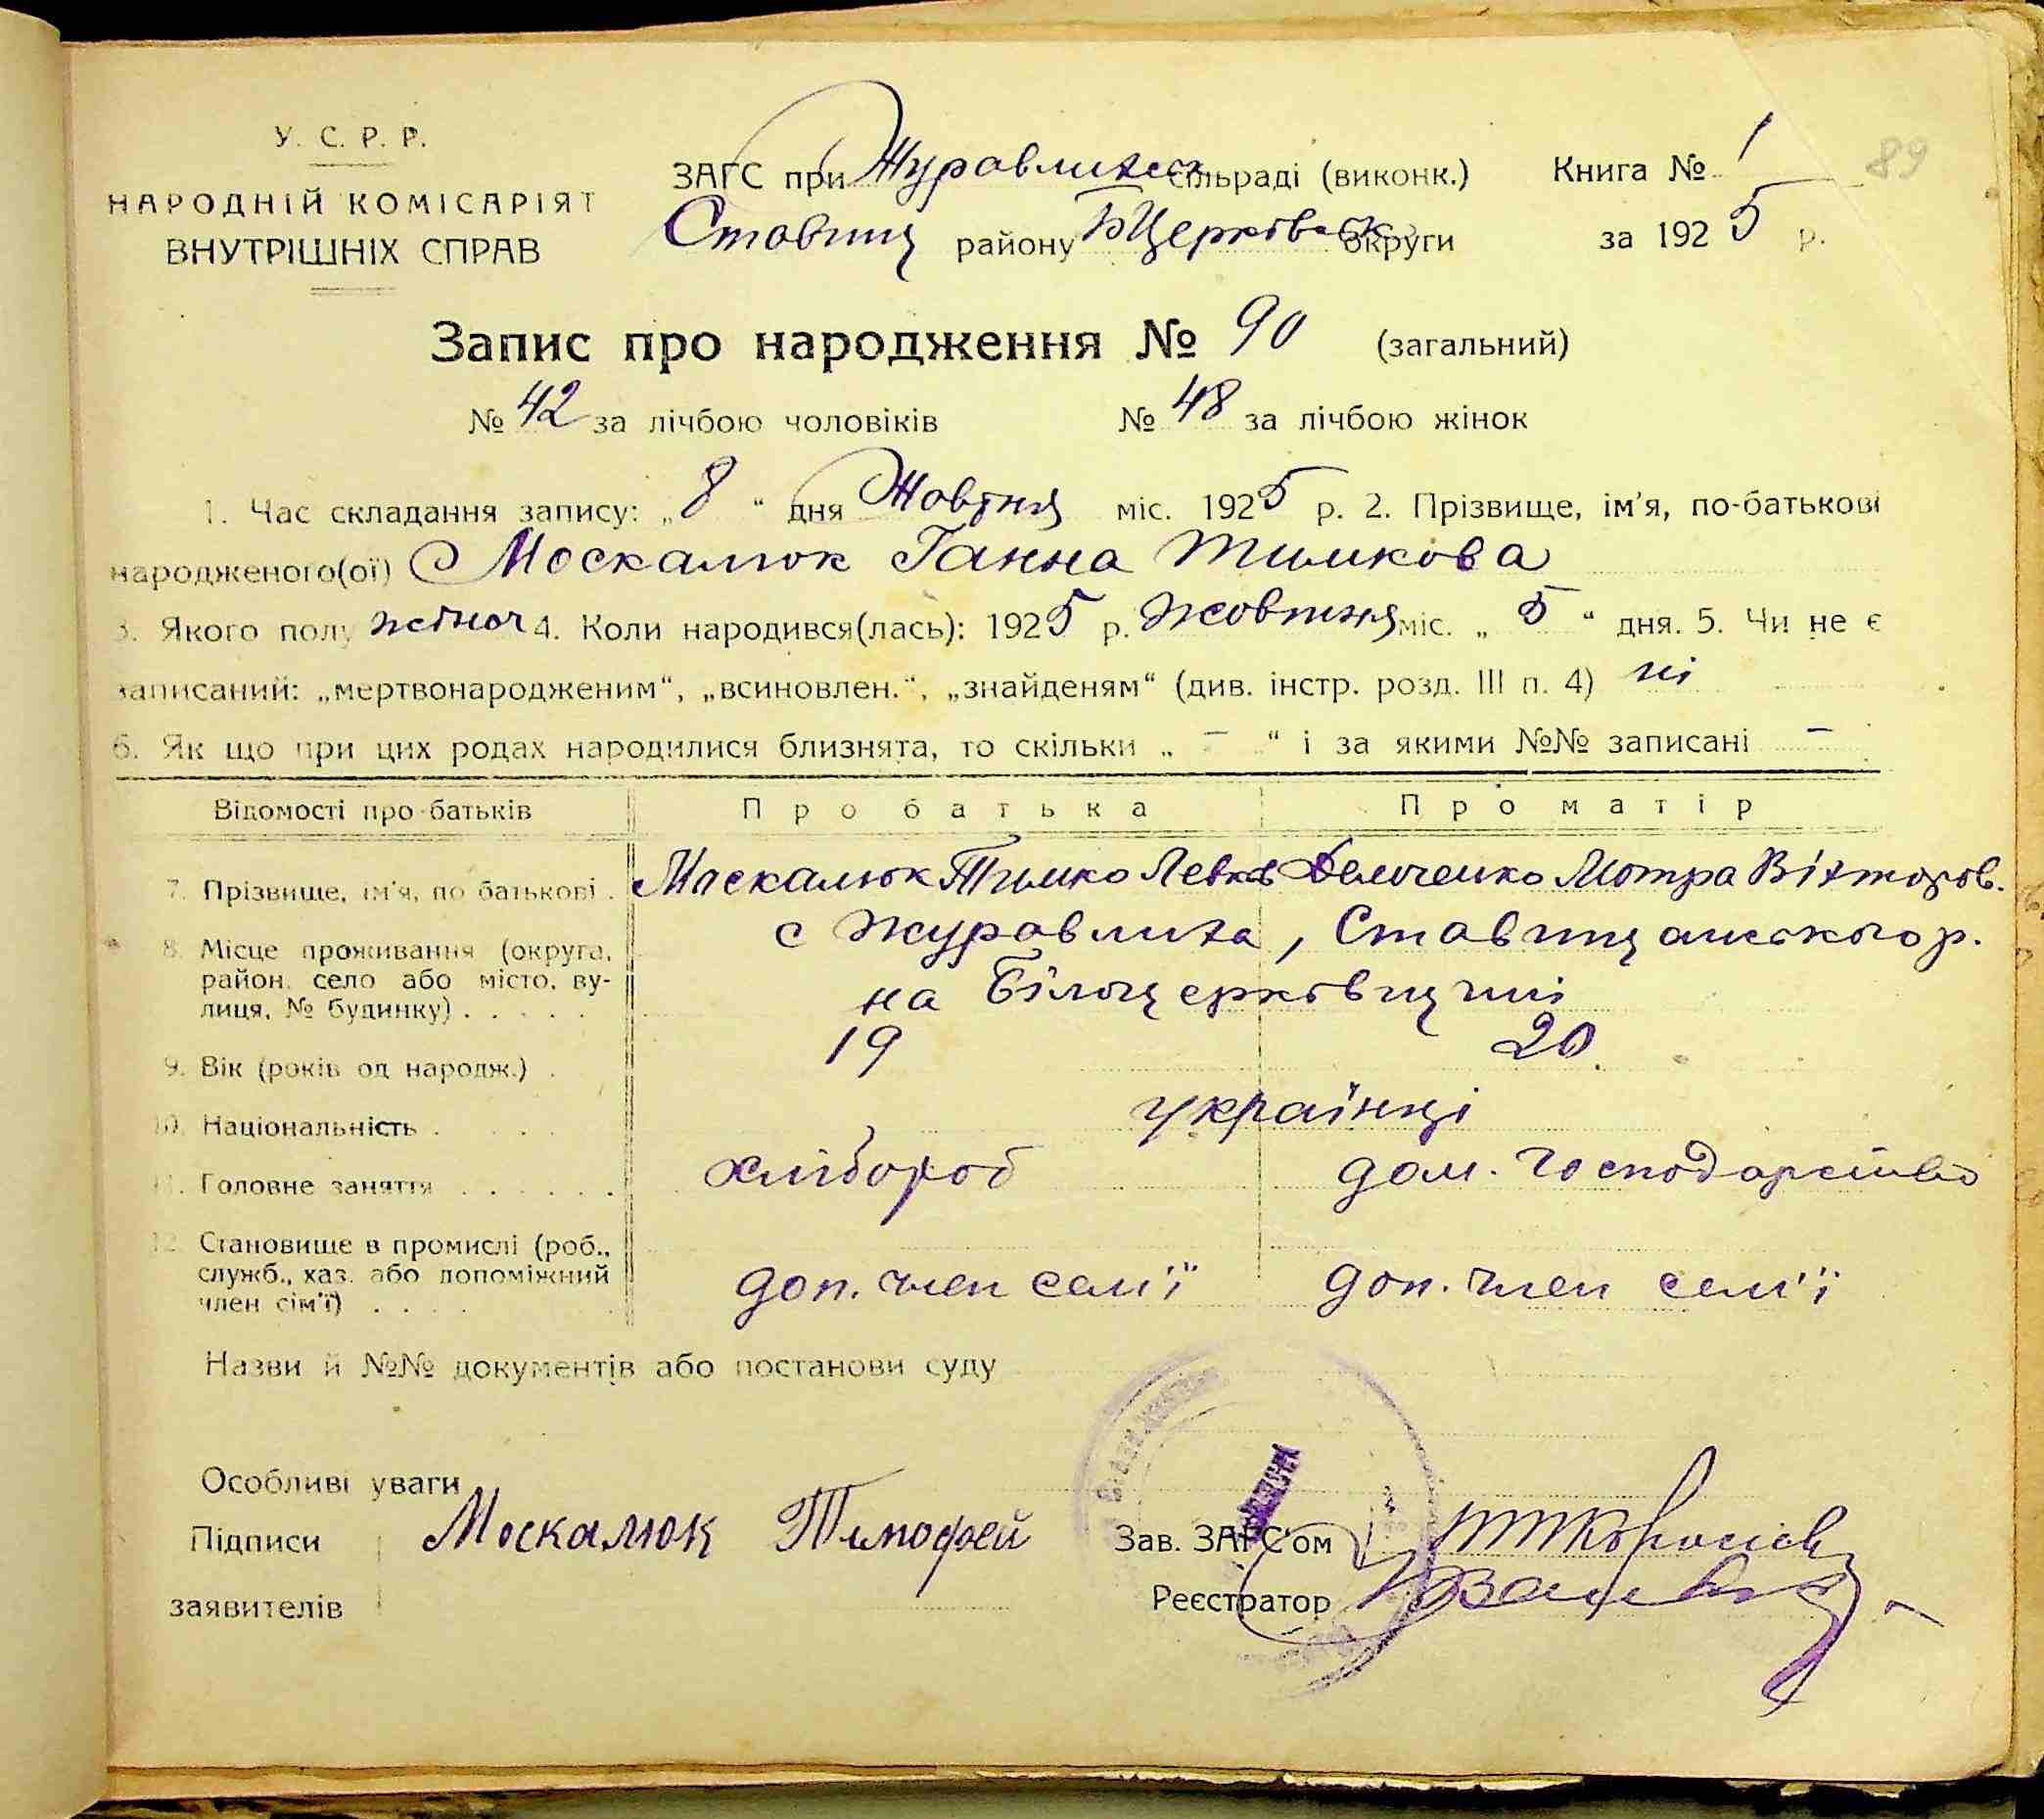 У. С. Р. Р.
НАРОДНІЙ КОМІСАРІЯТ
ВНУТРІШНІХ СПРАВ
ЗАГС при Журавлихск сільраді (виконк.)
Ставищ району БЦерківськ округи
Книга № 1
89
за 1925 р.
Запис про народження № 90 (загальний)
№ 42 за лічбою чоловіків № 48 за лічбою жінок
1. Час складання запису: „8“ дня Жовтня міс. 1925 р. 2. Прізвище, ім'я, по-батькові
народженого(ої) Москалюк Ганна Тимкова
3. Якого полу жіноч 4. Коли народився(лась): 1925 р. жовтня міс. „5“ дня. 5. Чи не є
записаний: „мертвонародженим“, „всиновлен.“, „знайденям“ (див. інстр. розд. III п. 4) ні
6. Як що при цих родах народилися близнята, то скільки „ – “ і за якими №№ записані –
Відомості про батьків Про батька Про матір
7. Прізвище, ім'я, по батькові . Маскалюк Тимко Левков Демченко Мотра Вікторов.
8. Місце проживання (округа, район, село або місто, ву-лиця, № будинку) . . . . . с Журавлиха, Ставищанського р.
на Білоцерківщині
9. Вік (років од народж.) . 19 20.
10. Національність . . . . українці
11. Головне заняття . . . . . . хлібороб дом. господарство
12. Становище в промислі (роб., служб., хаз. або допоміжний член сім'ї) . . . . доп. член сем'ї доп. член сем'ї
Назви й №№ документів або постанови суду
Особливі уваги
Підписи заявителів Москалюк Тімофей
Зав. ЗАГС'ом
Реєстратор